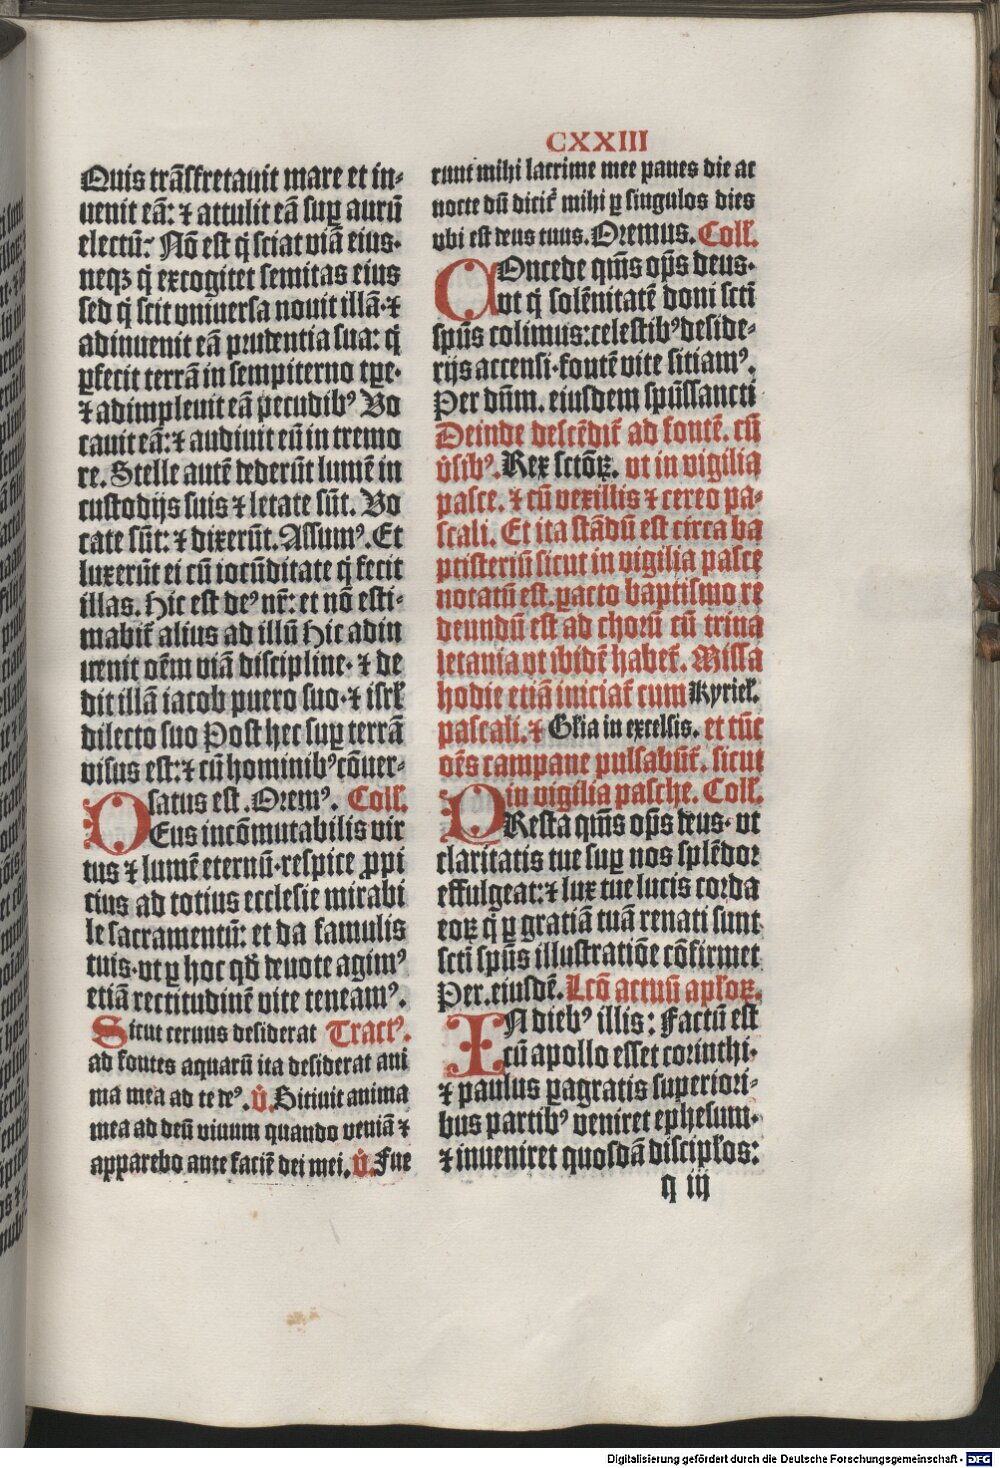 CXXIII
Quis trãsfretauit mare et in⸗
uenit eã: ⁊ attulit eã suꝑ aurũ
electũ: Nõ est q̇ sciat viã eius·
neqꝫ q̇ excogitet semitas eius
sed q̇ scit vniuersa nouit illã·⁊
adinuenit eã prudentia sua: q̇
ꝑfecit terrã in sempiterno tꝑe·
⁊ adimpleuit eã pecudibꝰ Vo
cauit eã: ⁊ audiuit eũ in tremo
re. Stelle autẽ dederũt lumẽ in
custodijs suis ⁊ letate sũt. Vo
cate sũt: ⁊ dixerũt. Assumꝰ. Et
luxerũt ei cũ iocũditate q̇ fecit
illas. Hic est deꝰ nr̃: et nõ esti⸗
mabit̃ alius ad illũ Hic adin
uenit oẽm viã discipline· ⁊ de
dit illã iacob puero suo·⁊ isrł
dilecto suo Post hec suꝑ terrã
visus est: ⁊ cũ hominibꝰ cõuer⸗
satus est. Oremꝰ. Coll̃.
DEus incõmutabilis vir
tus ⁊ lumẽ eternũ·respice ꝓpi
cius ad totius ecclesie mirabi
le sacramentũ: et da famulis
tuis·vt ꝑ hoc qđ deuote agimꝰ
etiã rectitudinẽ vite teneamꝰ.
Sicut ceruus desiderat Tractꝰ.
ad fontes aquarũ ita desiderat ani
ma mea ad te deꝰ. v̇. Sitiuit anima
mea ad deũ viuum quando veniã ⁊
apparebo ante faciẽ dei mei. v̇. Fue
runt mihi lacrime mee panes die ac
nocte dũ dicit̃ mihi ꝑ singulos dies
vbi est deus tuus. Oremus. Coll̃.
COncede qm̃s op̃s deus·
vt q̇ solẽnitatẽ doni scti
spũs colimus: celestibꝰ deside⸗
rijs accensi·fontẽ vite sitiamꝰ.
Per dñm. eiusdem spũssancti
Deinde descẽdit̃ ad fontẽ. cũ
v̇sibꝰ. Rex sctõꝝ. vt in vigilia
pasce. ⁊ cũ vexillis ⁊ cereo pa⸗
scali. Et ita stãdũ est circa ba
ptisteriũ sicut in vigilia pasce
notatũ est. ꝑacto baptismo re
deundũ est ad chorũ cũ trina
letania vt ibidẽ habet̃. Missa
hodie etiã inciat̃ cum Kyriel̃.
pascali. ⁊ Glĩa in excelsis. et tũc
oẽs campane pulsabũt̃. sicut
in vigilia pasche. Coll̃.
PResta qm̃s op̃s deus· vt
claritatis tue suꝑ nos splẽdor
effulgeat: ⁊ lux tue lucis corda
eoꝝ q̇ ꝑ gratiã tuã renati sunt
scti spũs illustratiõe cõfirmet
Per. eiusdẽ. Lcõ actuũ apl̃oꝝ.
IN diebꝰ illis: Factũ est
cũ apollo esset corinthi·
⁊ paulus ꝑagratis superiori⸗
bus partibꝰ veniret ephesum·
⁊ inueniret quosdã discipl̃os:
q iij
Digitalisierung gefördert durch die Deutsche Forschungsgemeinschaft - DFG